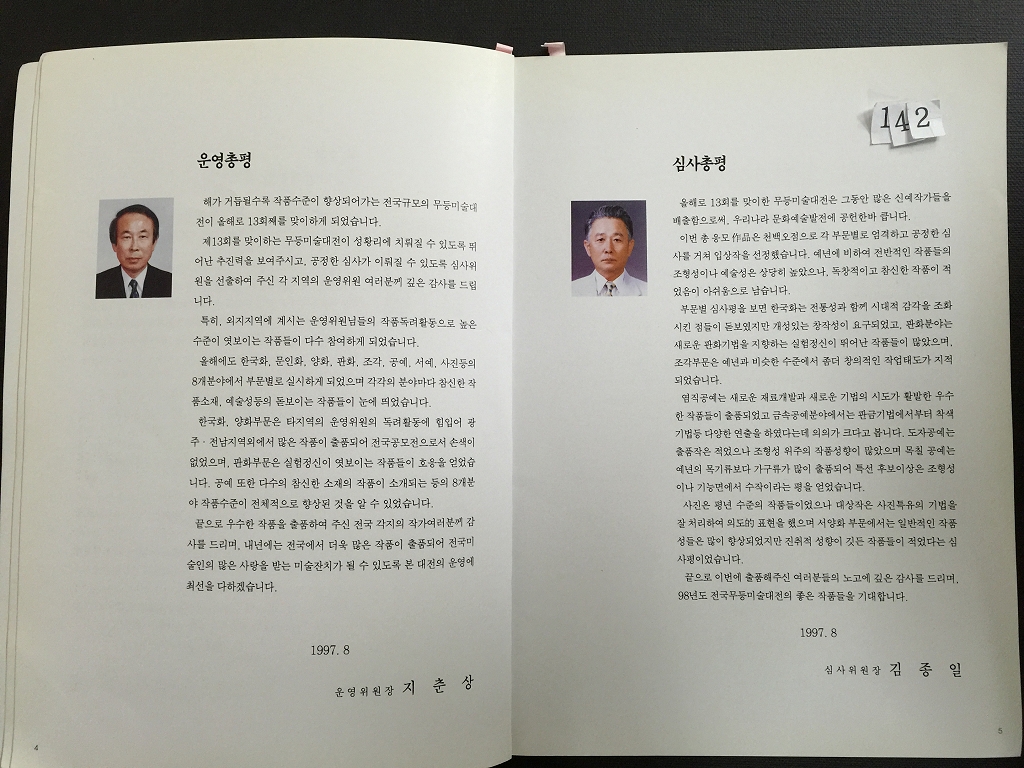 운영총평
해가 거듭될수록 작품수준이 향상되어가는 전국규모의 무등미술대
전이 올해로 13회째를 맞이하게 되었습니다.
제13회를 맞이하는 무등미술대전이 성황리에 치뤄질 수 있도록 뛰
어난 추진력을 보여주시고, 공정한 심사가 이뤄질 수 있도록 심사위
원을 선출하여 주신 각 지역의 운영위원 여러분께 깊은 감사를 드립
니다.
특히, 외지지역에 계시는 운영위원님들의 작품독려활동으로 높은
수준이 엿보이는 작품들이 다수 참여하게 되었습니다.
올해에도 한국화, 문인화, 양화, 판화, 조각, 공예, 서예, 사진등의
8개분야에서 부문별로 실시하게 되었으며 각각의 분야마다 참신한 작
품소재, 예술성등의 돋보이는 작품들이 눈에 띄었습니다.
한국화, 양화부문은 타지역의 운영위원의 독려활동에 힘입어 광
주·전남지역외에서 많은 작품이 출품되어 전국공모전으로서 손색이
없었으며, 판화부문은 실험정신이 엿보이는 작품들이 호응을 얻었습
니다. 공예 또한 다수의 참신한 소재의 작품이 소개되는 등의 8개분
야 작품수준이 전체적으로 향상된 것을 알 수 있었습니다.
끝으로 우수한 작품을 출품하여 주신 전국 각지의 작가여러분께 감
사를 드리며, 내년에는 전국에서 더욱 많은 작품이 출품되어 전국미
술인의 많은 사랑을 받는 미술잔치가 될 수 있도록 본 대전의 운영에
최선을 다하겠습니다.
1997. 8
운영위원장 지 춘 상
4
142
심사총평
올해로 13회를 맞이한 무등미술대전은 그동안 많은 신예작가들을
배출함으로써, 우리나라 문화예술발전에 공헌한바 큽니다.
이번 총 응모 作品은 천백오점으로 각 부문별로 엄격하고 공정한 심
사를 거쳐 입상작을 선정했습니다. 예년에 비하여 전반적인 작품들의
조형성이나 예술성은 상당히 높았으나, 독창적이고 참신한 작품이 적
었음이 아쉬움으로 남습니다.
부문별 심사평을 보면 한국화는 전통성과 함께 시대적 감각을 조화
시킨 점들이 돋보였지만 개성있는 창작성이 요구되었고, 판화분야는
새로운 판화기법을 지향하는 실험정신이 뛰어난 작품들이 많았으며,
조각부문은 예년과 비슷한 수준에서 좀더 창의적인 작업태도가 지적
되었습니다.
염직공예는 새로운 재료개발과 새로운 기법의 시도가 활발한 우수
한 작품들이 출품되었고 금속공예분야에서는 판금기법에서부터 착색
기법등 다양한 연출을 하였다는데 의의가 크다고 봅니다. 도자공예는
출품작은 적었으나 조형성 위주의 작품성향이 많았으며 목칠 공예는
예년의 목기류보다 가구류가 많이 출품되어 특선 후보이상은 조형성
이나 기능면에서 수작이라는 평을 얻었습니다.
사진은 평년 수준의 작품들이었으나 대상작은 사진특유의 기법을
잘 처리하여 의도的 표현을 했으며 서양화 부문에서는 일반적인 작품
성들은 많이 향상되었지만 진취적 성향이 깃든 작품들이 적었다는 심
사평이었습니다.
끝으로 이번에 출품해주신 여러분들의 노고에 깊은 감사를 드리며,
98년도 전국무등미술대전의 좋은 작품들을 기대합니다.
1997. 8
심사위원장 김 종 일
5